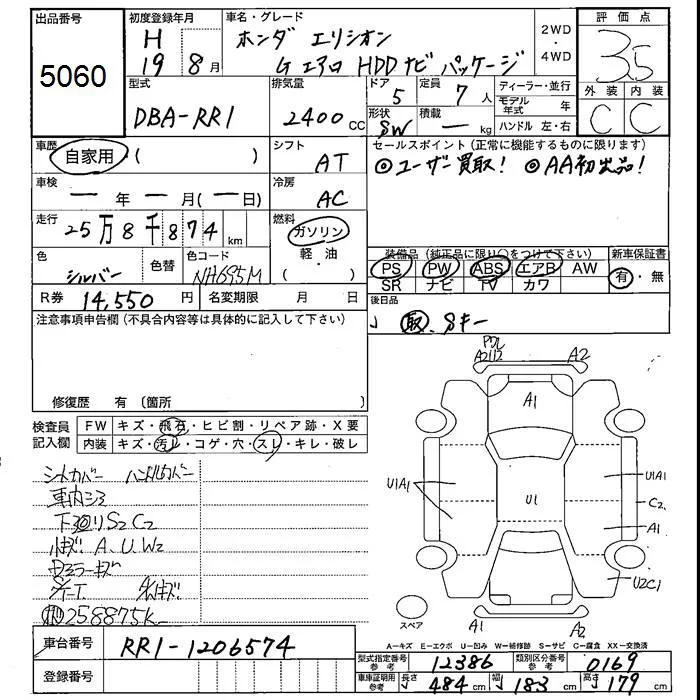 出品番号 初度登録年月 車名・グレード 2WD・4WD 評価点
5060 H 19 8月 ホンダ エリシオン 3.5
G エアロ HDDナビ パッケージ
外装 内装
C C
型式 排気量 ドア 定員 ディーラー・並行
DBA-RR1 2400cc 5 7人 モデル年式 年
形状 SW 積載 ー kg ハンドル 左・右
車歴 自家用 ( ) シフト AT セールスポイント(正常に機能するものに限ります)
◎ユーザー買取! ◎AA初出品!
車検 ー年ー月(ー日) 冷房 AC
走行 25万8千874km 燃料 ガソリン・軽油 ( )
色 シルバー 色替 色コード NH695M
装備品(純正品に限り○をつけて下さい) 新車保証書
PS PW ABS エアB AW 有・無
SR ナビ TV カワ
R券 14,550円 名変期限 月 日 後日品
取. Sキー
注意事項申告欄(不具合内容等は具体的に記入して下さい)
修復歴 有(箇所 )
検査員記入欄 FW キズ・飛石・ヒビ割・リペア跡・X要
内装 キズ・汚れ・コゲ・穴・スレ・キレ・破レ
シートカバー ハンドルカバー
車内シミ
下廻りS2 C2
小キズ A、U、W2
258875k
A2 A1 U1 U1A1 U1A1 C2 A1 U2C1 A1 A2
スペア
A-キズ E-エクボ U-凹み W-補修跡 S-サビ C-腐食 XX-交換済
車台番号 RR1-1206574
型式指定番号参考 12386 類別区分番号参考 0169
登録番号 車庫証明用参考 長さ 484cm 幅 183cm 高さ 179cm